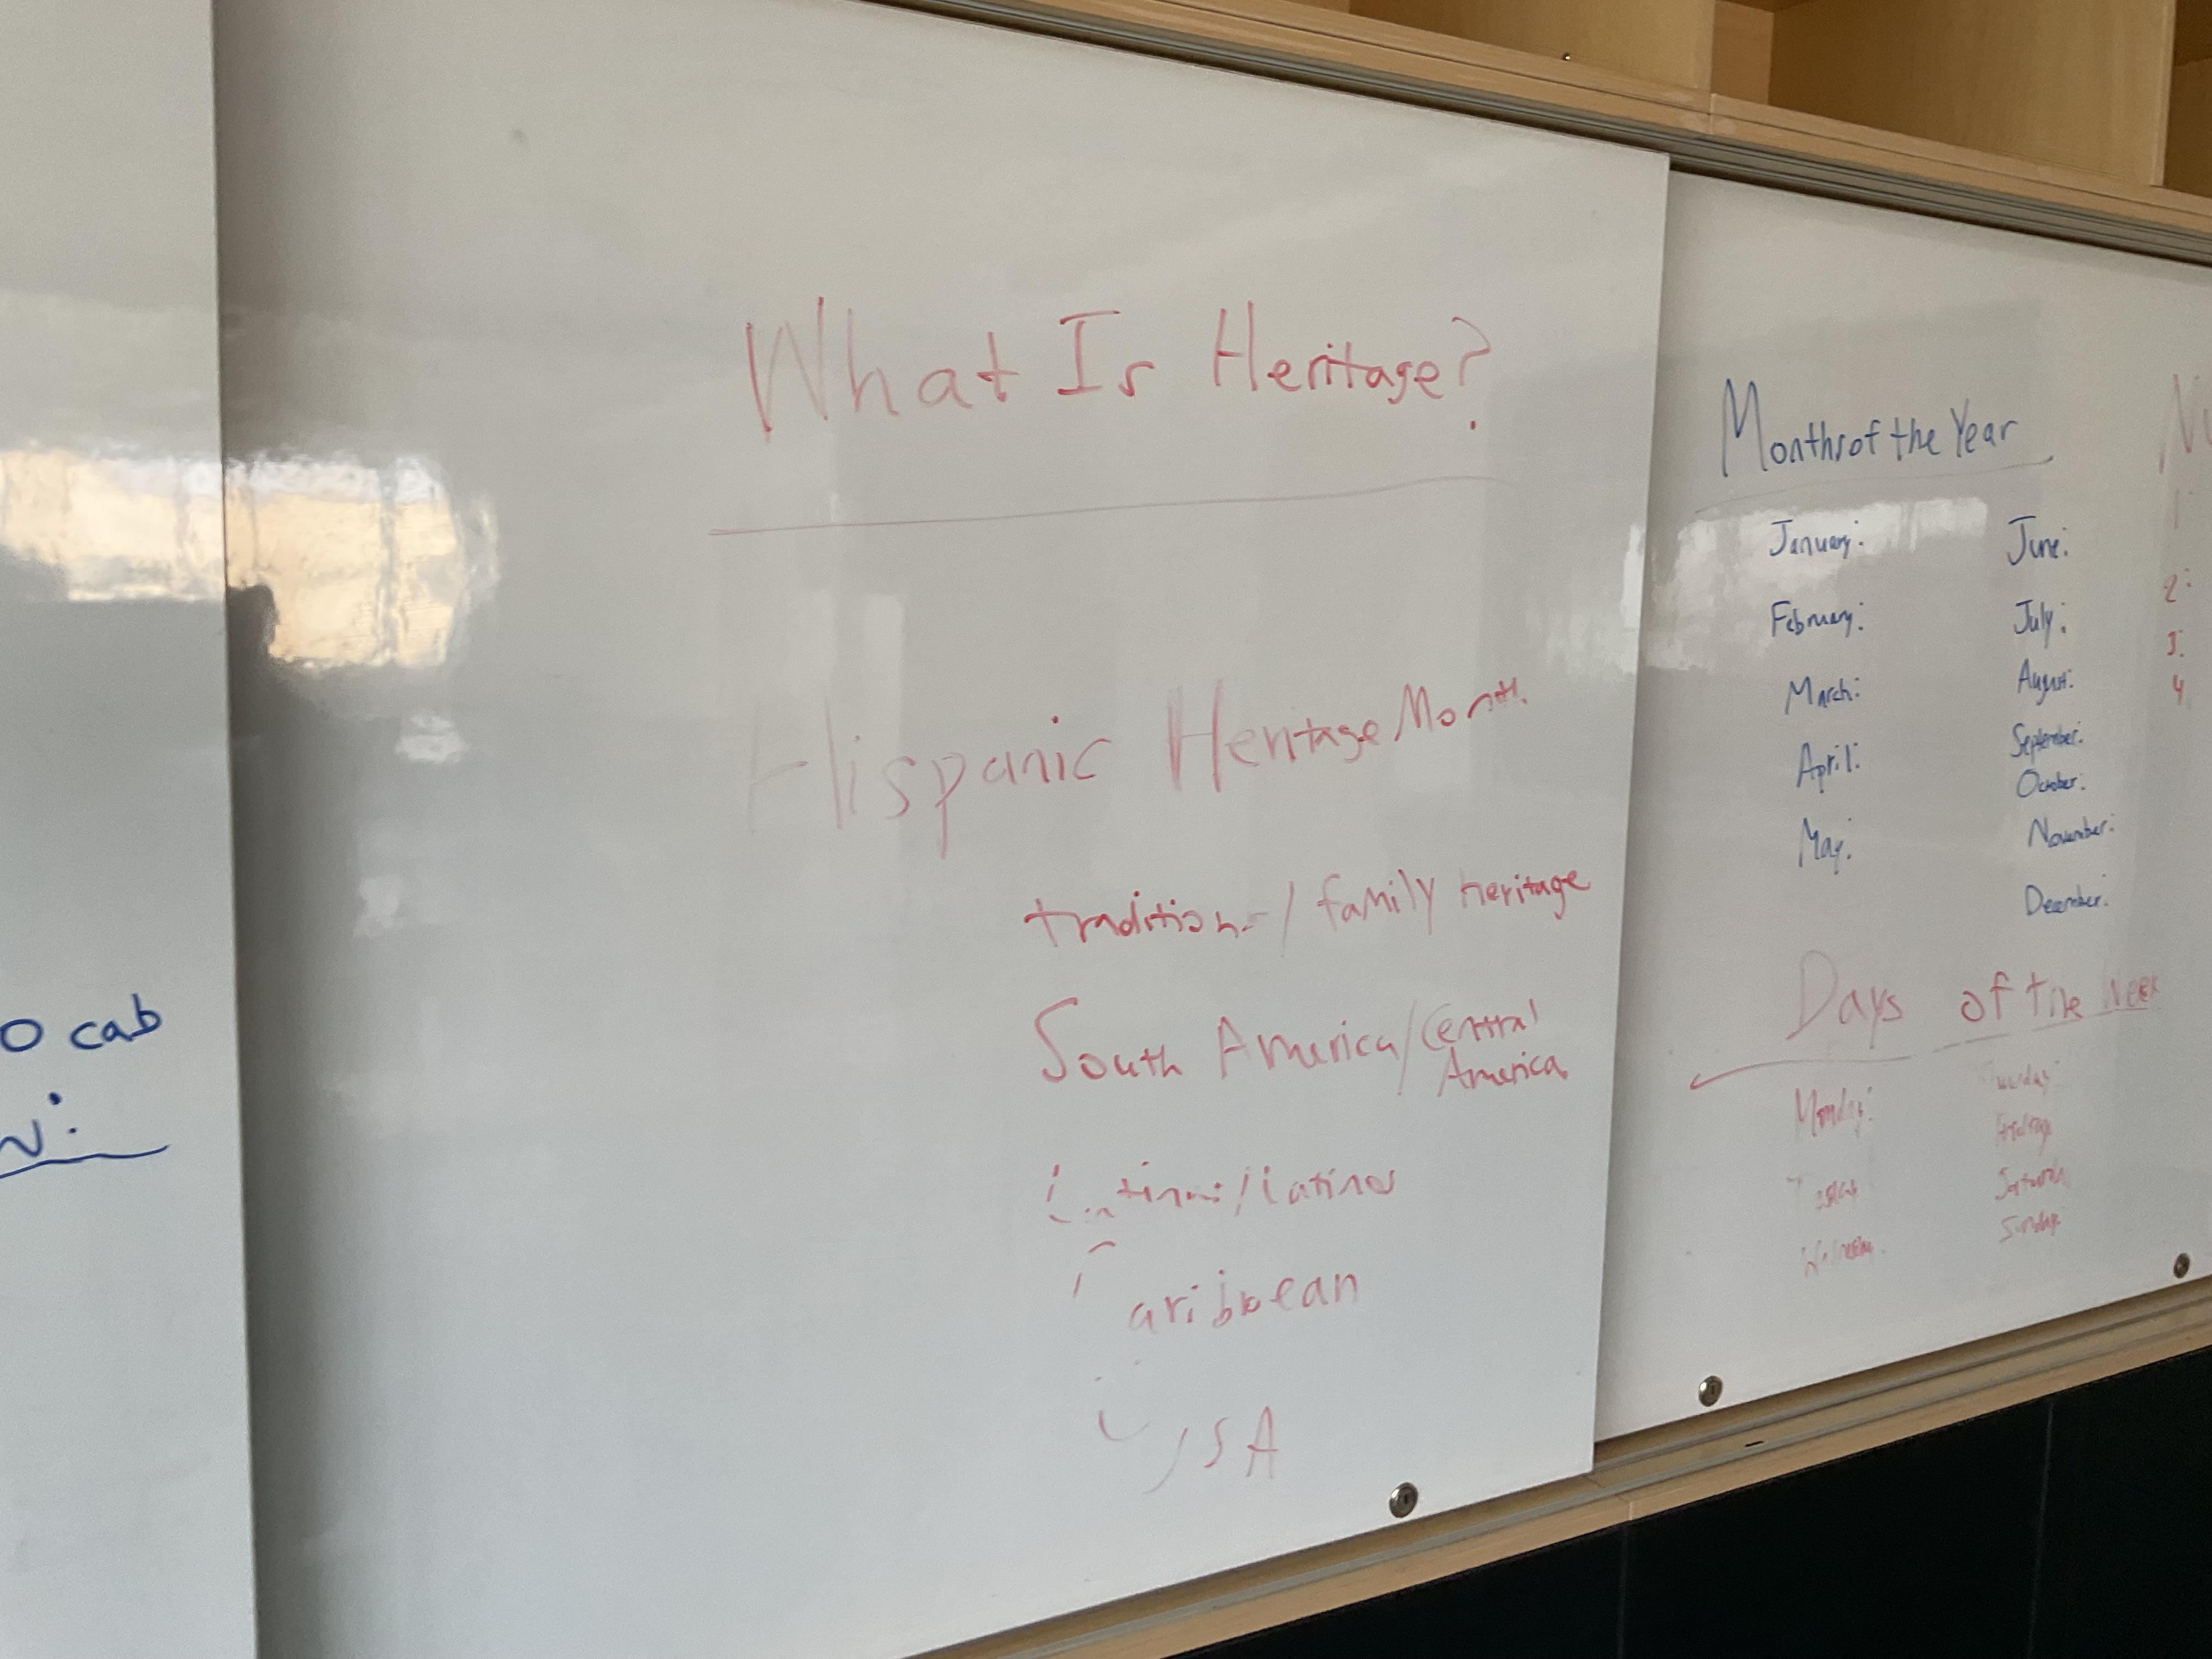 ocab
What Is Heritage?
Hispanic Heritage Month
tradition / family heritage
South America/Central
America
/Latinos
aribbean
USA
Months of the Year
January:
February:
March:
April:
May:
June:
July:
August:
September:
October:
November:
December:
2:
3:
4
Days of the Week
Monday:
Saturday
Sunday